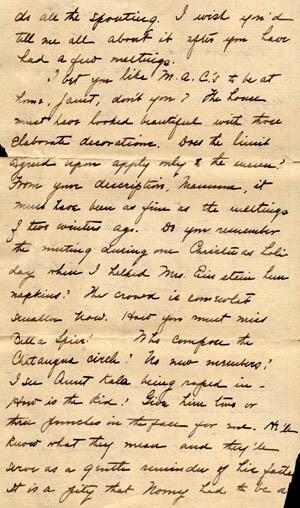 do all the spouting. I wish you'd
tell me all about it after you have
had a few meetings.
I bet you like M.A.C.'s to be at
home, Janet, don't you? The house
must have looked beautiful with those
elaborate decorations. Does the limit
agreed upon apply only to the menu?
From your description, Mamma, it
must have been as fine as the meetings
of two winters ago. Do you remember
the meeting during one Christmas holi-
day when I helped Mrs. Einstein hem
napkins? The crowd is somewhat
smaller now. How you must miss
Bella Spiro! Who compose the
circle? No new members?
I see Aunt being roped in -
How is the kid? Give him two or
three punches in the face for me. He'll
know what they mean and they'll
serve as a gentle reminder of his father
It is a pity that had to be a